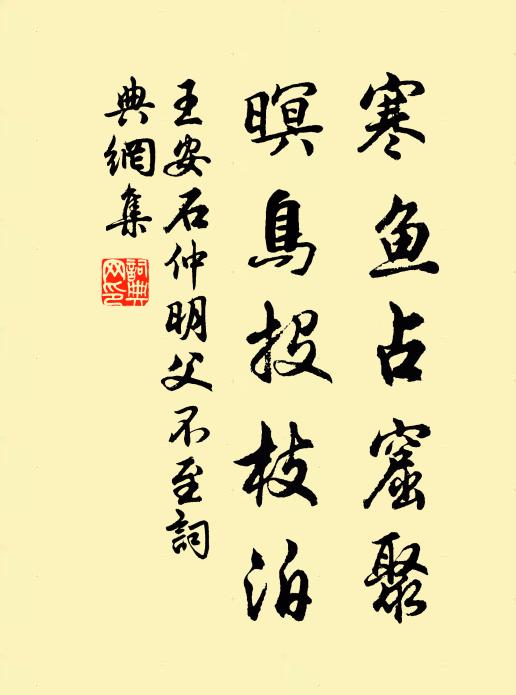 寒鱼占窟聚
暝鳥投枝泊
王安石仲明父不至詞
典網集
詞典
网印